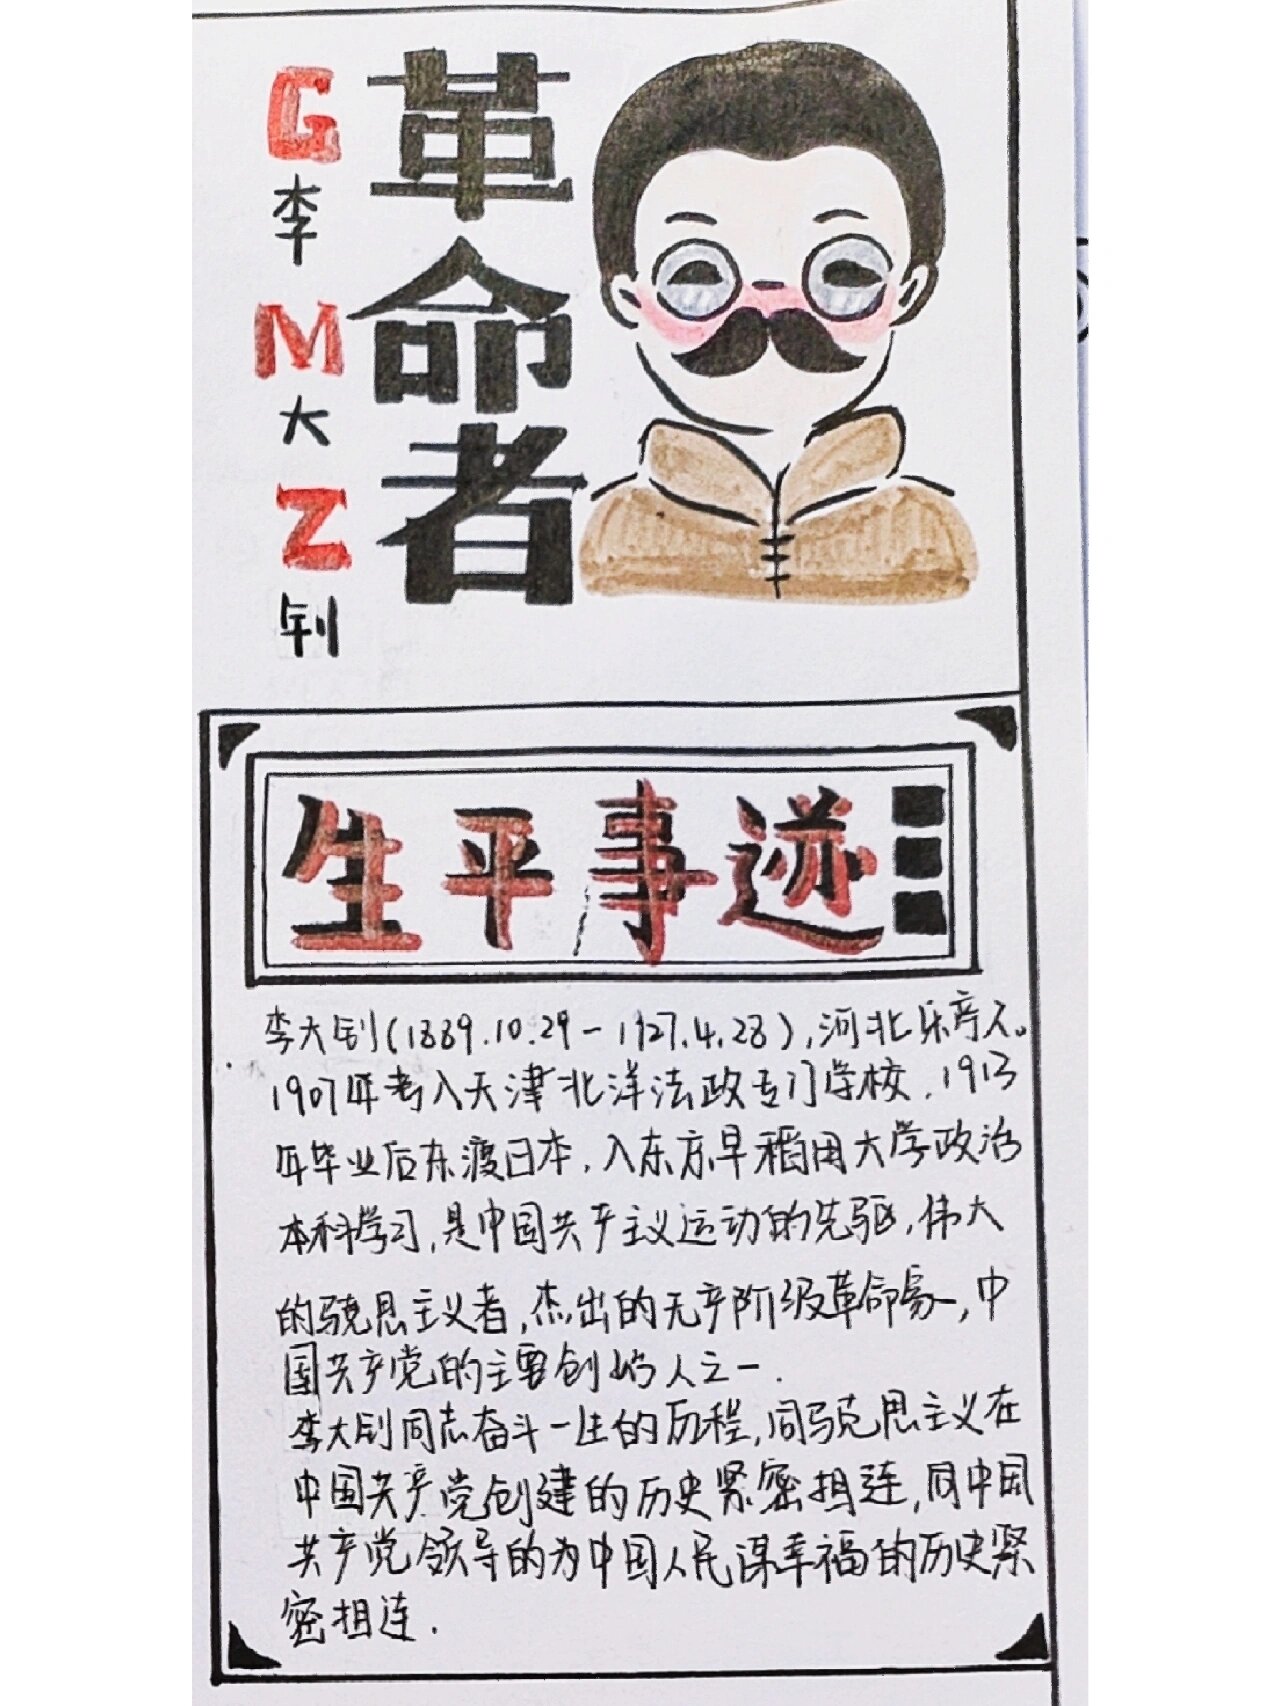 革命者
G李M大Z钊
生平事迹
李大钊(1889.10.29-1927.4.28),河北乐亭人。
1907年考入天津北洋法政专门学校,1913
年毕业后东渡日本,入东京早稻田大学政治
本科学习,是中国共产主义运动的先驱,伟大
的马克思主义者,杰出的无产阶级革命家,中
国共产党的主要创始人之一.
李大钊同志奋斗一生的历程,同马克思主义在
中国共产党创建的历史紧密相连,同中国
共产党领导的为中国人民谋幸福的历史紧
密相连.